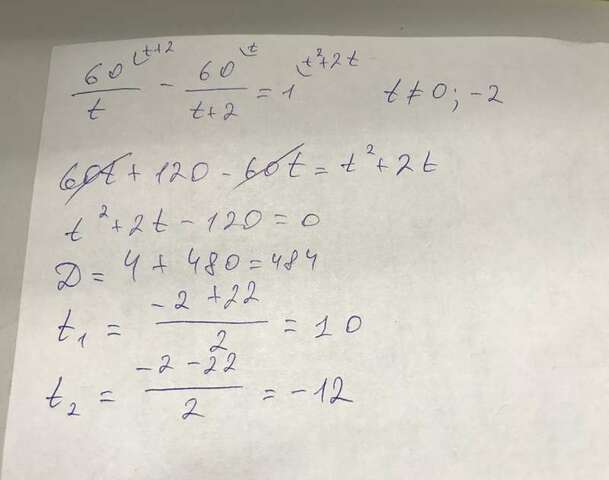 60^(t+2)/t - 60^t/(t+2) = 1^(t²+2t)   t ≠ 0; -2
60t + 120 - 60t = t² + 2t
t² + 2t - 120 = 0
D = 4 + 480 = 484
t₁ = (-2 + 22)/2 = 10
t₂ = (-2 - 22)/2 = -12